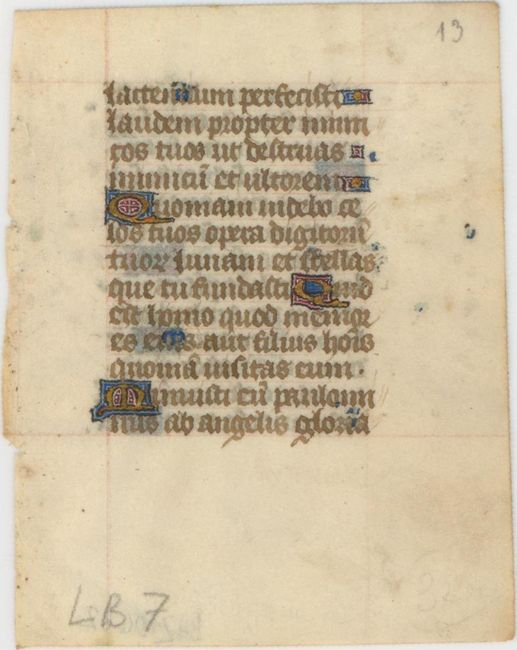 13
lactentium perfecisti
laudem propter inim
cos tuos ut destruas
inimicū et ultorem
Quoniam videbo ce
los tuos opera digitorū
tuor lunam et stellas
que tu fundasti Quid
est homo quod memor
es eius aut filius hoīs
quoniā visitas eum.
Minuisti eū paulomi
nus ab angelis gloria
LB 7